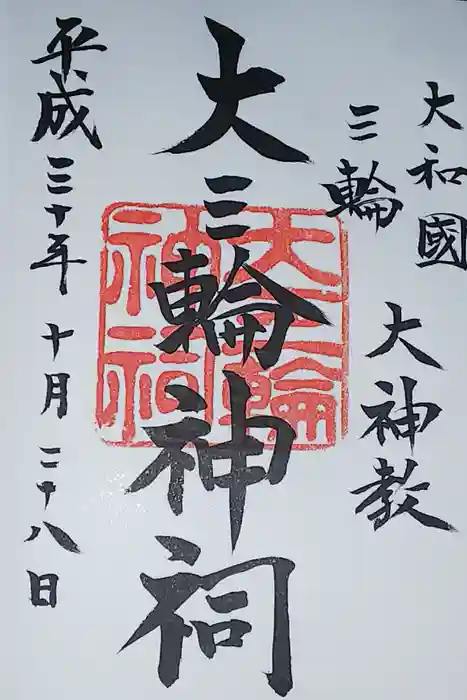 大和國
三輪
大神教
大三輪神祠
大三輪神祠
平成三十年十月二十八日